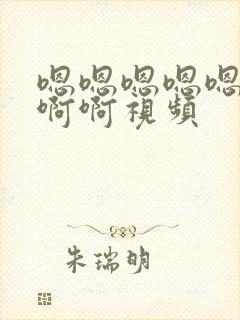 嗯嗯嗯嗯嗯
啊啊視頻
朱瑞明